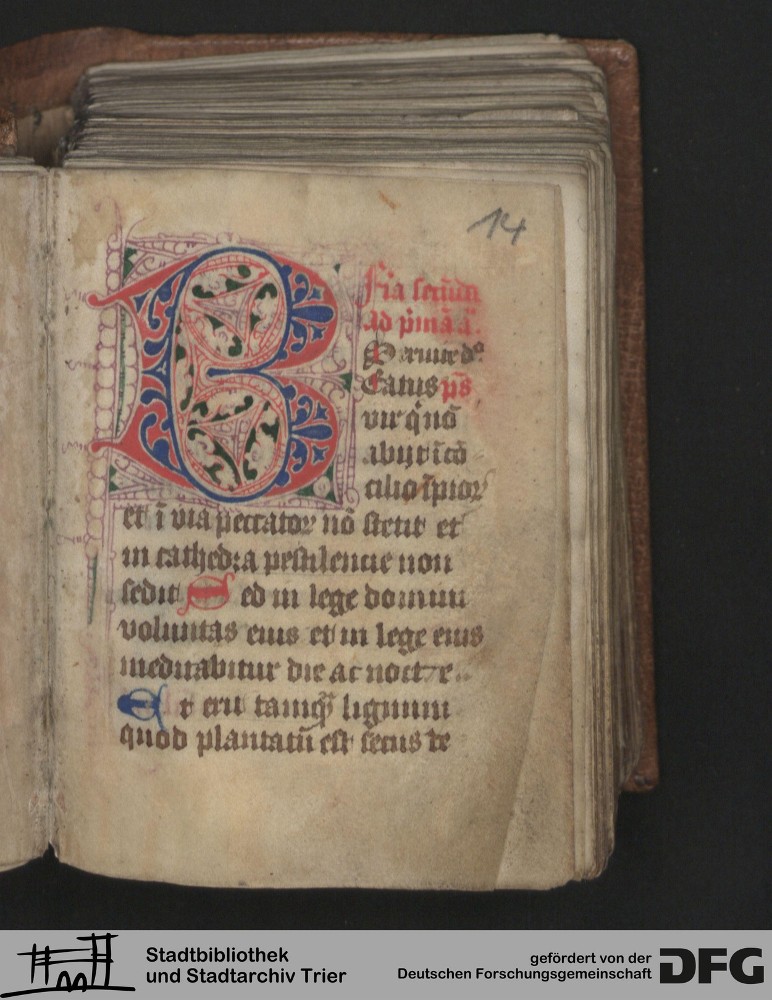 14
B
Fia secūda
ad p̄mā a.
Seruite dº
Eatus p̄s
vir q̇ nō
abijt ī cō
cilio īpioꝝ
et ī via peccatoꝝ nō stetit et
in cathedra pestilencie non
sedit Sed in lege domini
voluntas eius et in lege eius
meditabitur die ac nocte
Et erit tamqͣ lignum
quod plantatū est secus de
Stadtbibliothek
und Stadtarchiv Trier
gefördert von der
Deutschen Forschungsgemeinschaft
DFG